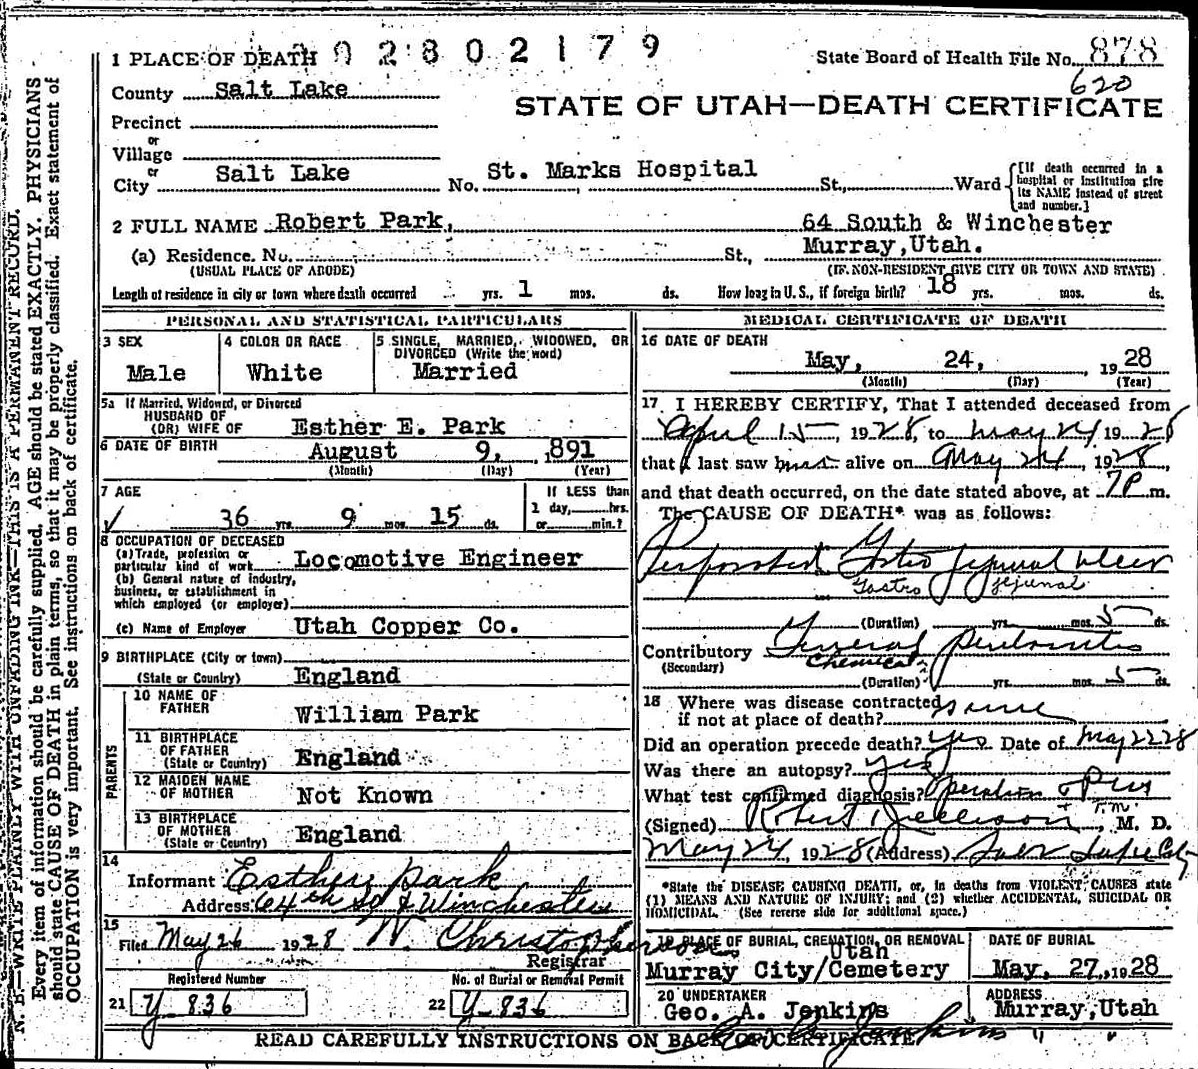 N. B.—WRITE PLAINLY WITH UNFADING INK—THIS IS A PERMANENT RECORD.
Every item of information should be carefully supplied. AGE should be stated EXACTLY. PHYSICIANS
should state CAUSE OF DEATH in plain terms, so that it may be properly classified. Exact statement of
OCCUPATION is very important. See instructions on back of certificate.
1 PLACE OF DEATH 02802179 State Board of Health File No. 878
620
County Salt Lake
STATE OF UTAH—DEATH CERTIFICATE
Precinct
or
Village
or
City Salt Lake No. St. Marks Hospital St., Ward
[If death occurred in a hospital or institution give its NAME instead of street and number.]
2 FULL NAME Robert Park, 64 South & Winchester
(a) Residence. No. St., Murray, Utah.
(USUAL PLACE OF ABODE) (IF NON-RESIDENT GIVE CITY OR TOWN AND STATE)
Length of residence in city or town where death occurred yrs. 1 mos. ds. How long in U. S., if foreign birth? 18 yrs. mos. ds.
PERSONAL AND STATISTICAL PARTICULARS
3 SEX
Male
4 COLOR OR RACE
White
5 SINGLE, MARRIED, WIDOWED, OR
DIVORCED (Write the word)
Married
5a If Married, Widowed, or Divorced
HUSBAND OF
(OR) WIFE OF Esther E. Park
6 DATE OF BIRTH August 9, 1891
(Month) (Day) (Year)
7 AGE
36 yrs. 9 mos. 15 ds.
If LESS than
1 day, hrs.
or min.?
8 OCCUPATION OF DECEASED
(a) Trade, profession or
particular kind of work Locomotive Engineer
(b) General nature of industry,
business, or establishment in
which employed (or employer)
(c) Name of Employer Utah Copper Co.
9 BIRTHPLACE (City or town)
(State or Country) England
PARENTS
10 NAME OF
FATHER William Park
11 BIRTHPLACE
OF FATHER
(State or Country) England
12 MAIDEN NAME
OF MOTHER Not Known
13 BIRTHPLACE
OF MOTHER
(State or Country) England
14
Informant Esther Park
Address 64th So & Winchester
15
Filed May 26 1928 N. Christopherson
Registrar
Registered Number
21 Y-836
No. of Burial or Removal Permit
22 Y-836
MEDICAL CERTIFICATE OF DEATH
16 DATE OF DEATH
May, 24, 1928
(Month) (Day) (Year)
17 I HEREBY CERTIFY, That I attended deceased from
April 15, 1928, to May 24 1928
that I last saw him alive on May 24, 1928,
and that death occurred, on the date stated above, at 7P m.
The CAUSE OF DEATH* was as follows:
Perforated Gastro jejunal ulcer
Gastro jejunal
(Duration) yrs. mos. 5 ds.
Contributory General peritonitis
(Secondary) Chemical
(Duration) yrs. mos. 5 ds.
18 Where was disease contracted
if not at place of death? same
Did an operation precede death? yes Date of May 22 28
Was there an autopsy? yes
What test confirmed diagnosis? Operation & P.M.
(Signed) Robert M. D.
May 24, 1928 (Address) Salt Lake City
*State the DISEASE CAUSING DEATH, or, in deaths from VIOLENT CAUSES state
(1) MEANS AND NATURE OF INJURY; and (2) whether ACCIDENTAL, SUICIDAL OR
HOMICIDAL. (See reverse side for additional space.)
19 PLACE OF BURIAL, CREMATION, OR REMOVAL
Utah
Murray City/Cemetery
DATE OF BURIAL
May, 27, 1928
20 UNDERTAKER
Geo. A. Jenkins
ADDRESS
Murray, Utah
Geo A Jenkins " "
READ CAREFULLY INSTRUCTIONS ON BACK OF CERTIFICATE